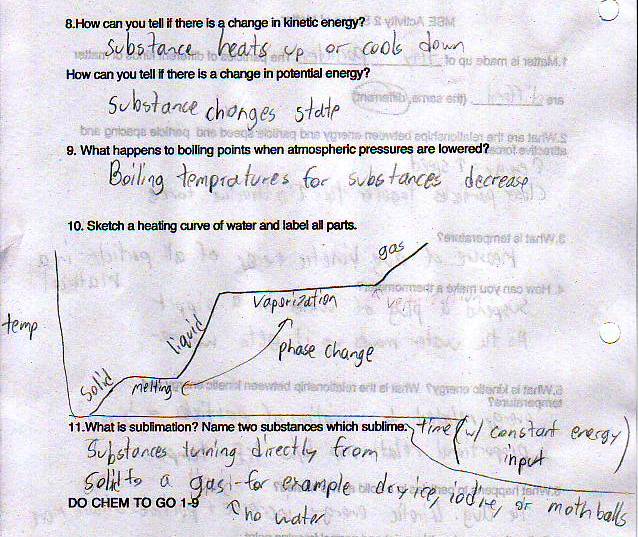 8.How can you tell if there is a change in kinetic energy?
Substance heats up or cools down
How can you tell if there is a change in potential energy?
Substance changes state
9. What happens to boiling points when atmospheric pressures are lowered?
Boiling tempratures for substances decrease
10. Sketch a heating curve of water and label all parts.
gas
vaporization
temp
liquid
phase change
solid
melting
11.What is sublimation? Name two substances which sublime.
time (w/ constant energy input)
Substances turning directly from
solid to a gas - for example dry ice, iodine, or moth balls
DO CHEM TO GO 1-9
no water